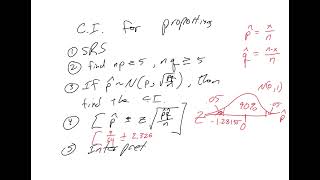 C.I. for proportion
① SRS
② find np ≥ 5, nq ≥ 5
③ If p̂ ~ N(p, √(pq/n)), then
find the C.I.
④ [ p̂ ± z √(p̂q̂/n) ]
± 2.326
⑤ Interpret
p̂ = x/n
q̂ = (n-x)/n
N(0,1)
.05 90% .05
Z -1.2815 0 p̂